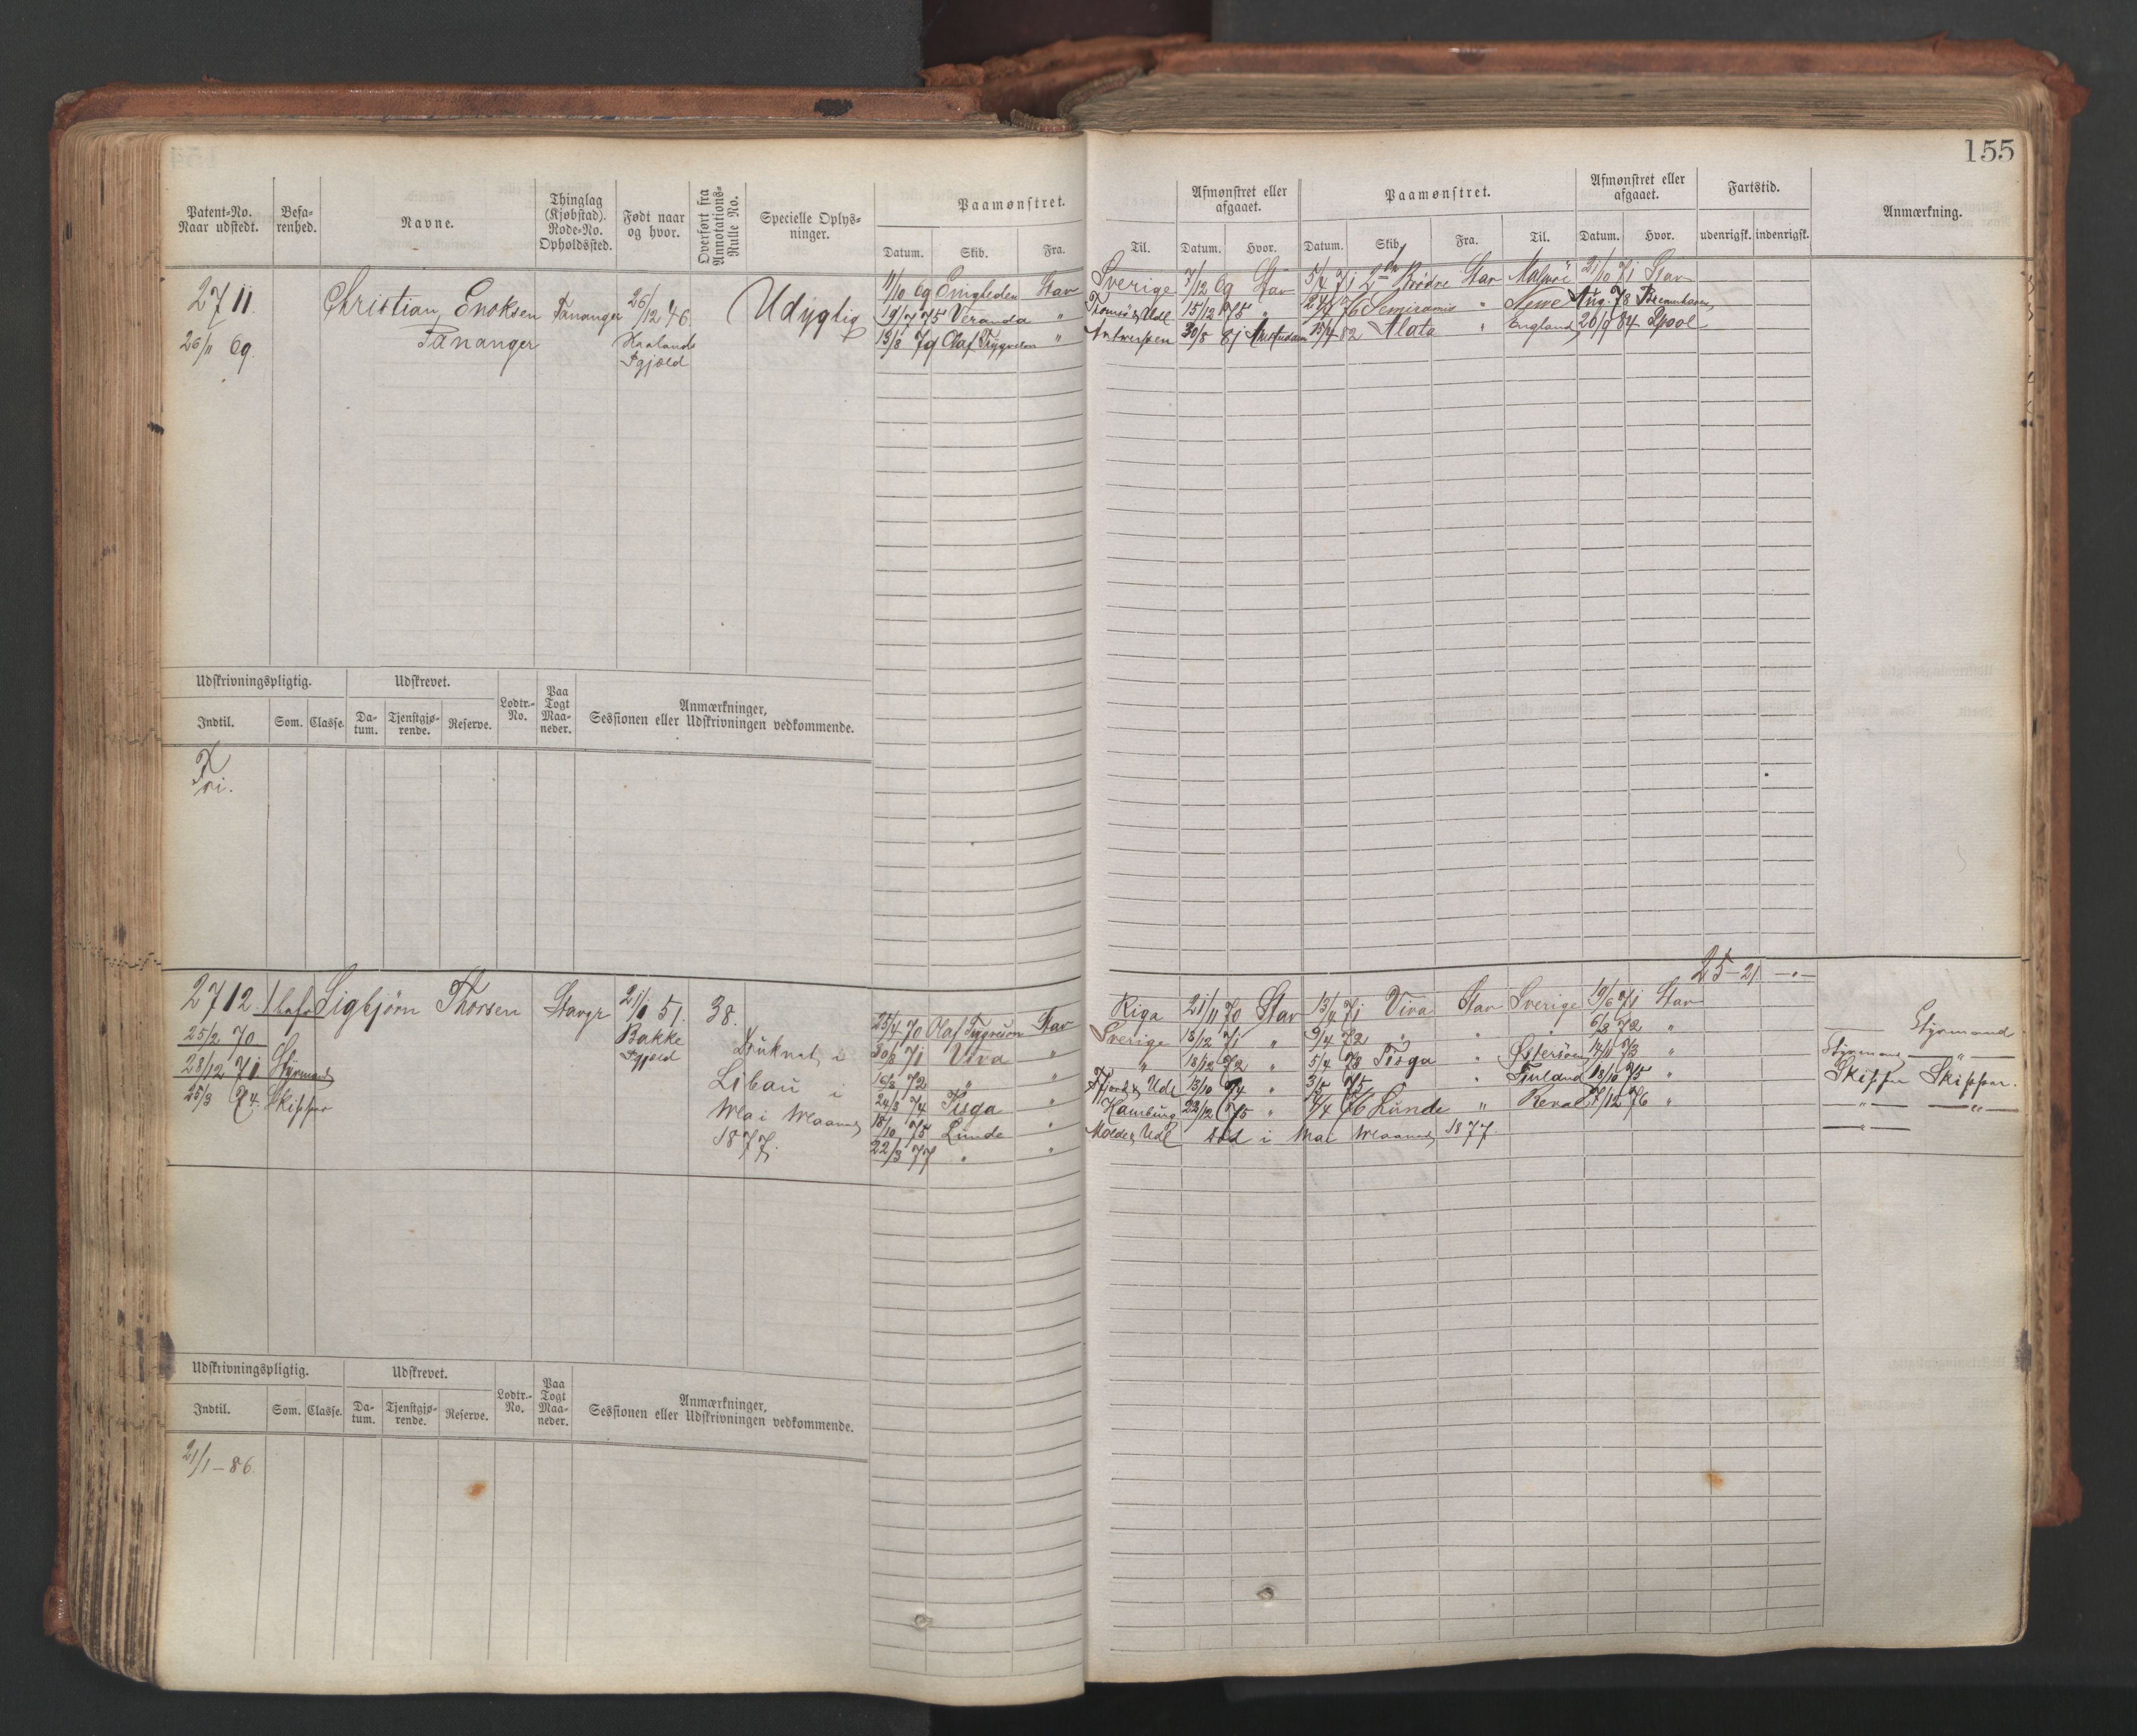 155
Patent-No. Naar udstedt.
Befarenhed.
Navne.
Thinglag (Kjøbstad). Rode-No. Opholdssted.
Født naar og hvor.
Overført fra Annotations-Rulle No.
Specielle Oplysninger.
Paamønstret.
Datum. Skib. Fra. Til.
Afmønstret eller afgaaet.
Datum. Hvor.
Paamønstret.
Datum. Skib. Fra. Til.
Afmønstret eller afgaaet.
Datum. Hvor.
Fartstid.
udenrigsk. indenrigsk.
Anmærkning.
2711. Christian Enoksen Tananger 26/12 46. Udygtig 11/10 69 Enigheden Stav Sverige 7/12 69 Stav 5/4 71 2de Brødre Stav Malmö 21/10 71 Stav
Tananger 19/7 75 Veranda " Tromsö & Udl 15/12 75 " 24/4 76 Semiramis " Newe Aug. 78 Bremerhaven
26/11 69. Haalands Pgjæld 13/8 79 Olaf Trygveson " Antwerpen 30/5 81 Amsterdam 15/4 82 Alota " England 26/9 84 Lpool
Udskrivningspligtig.
Udskrevet.
Lodtr.-No.
Paa Togt Maaneder.
Anmærkninger, Sessionen eller Udskrivningen vedkommende.
Indtil. Som. Classe. Datum. Tjenstgjørende. Reserve.
Fri.
25-21
2712. Sigbjörn Thorsen Stavgr 21/1 51. 38. 25/4 70 Olaf Trygveson Stav Riga 21/11 70 Stav 13/4 71 Viva Stav Sverige 19/6 71 Stav
25/2 70 Bakke Pgjæld Druknet i 20/6 71 Viva " Sverige 18/12 71 " 9/4 72 " " " 6/8 72 " Styrmand
28/12 71 Styrmand Libau i 16/8 72 " " " 18/12 72 " 5/4 73 Pisga " Østersøen 14/11 73 " Styrmand "
25/3 74. Skipper Mai Maaned 24/3 74 Pisga " Fjord & Udl 13/10 74 " 3/5 75 " " Finland 18/10 75 " Skipper Skipper.
1877. 18/10 75 Lunde " Hamburg 22/12 75 " 4/4 76 Lunde " Reval 7/12 76 " " "
22/3 77 " " Molde & Udl Död i Mai Maaned 1877. "
Udskrivningspligtig.
Udskrevet.
Lodtr.-No.
Paa Togt Maaneder.
Anmærkninger, Sessionen eller Udskrivningen vedkommende.
Indtil. Som. Classe. Datum. Tjenstgjørende. Reserve.
21/1-86.